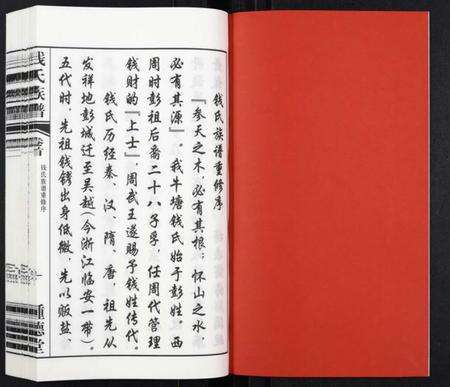 钱氏族谱重修序
『参天之木，必有其根；怀山之水，
必有其源』。我牛塘钱氏始于彭姓，西
周时彭祖后裔二十八子孚，任周代管理
钱财的『上士』，周武王遂赐予钱姓传代。
钱氏历经秦、汉、隋、唐，祖先从
发祥地彭城迁至吴越(今浙江临安一带)。
五代时，先祖钱镠出身低微，先以贩盐
钱氏族谱
钱氏族谱重修序
锺德堂